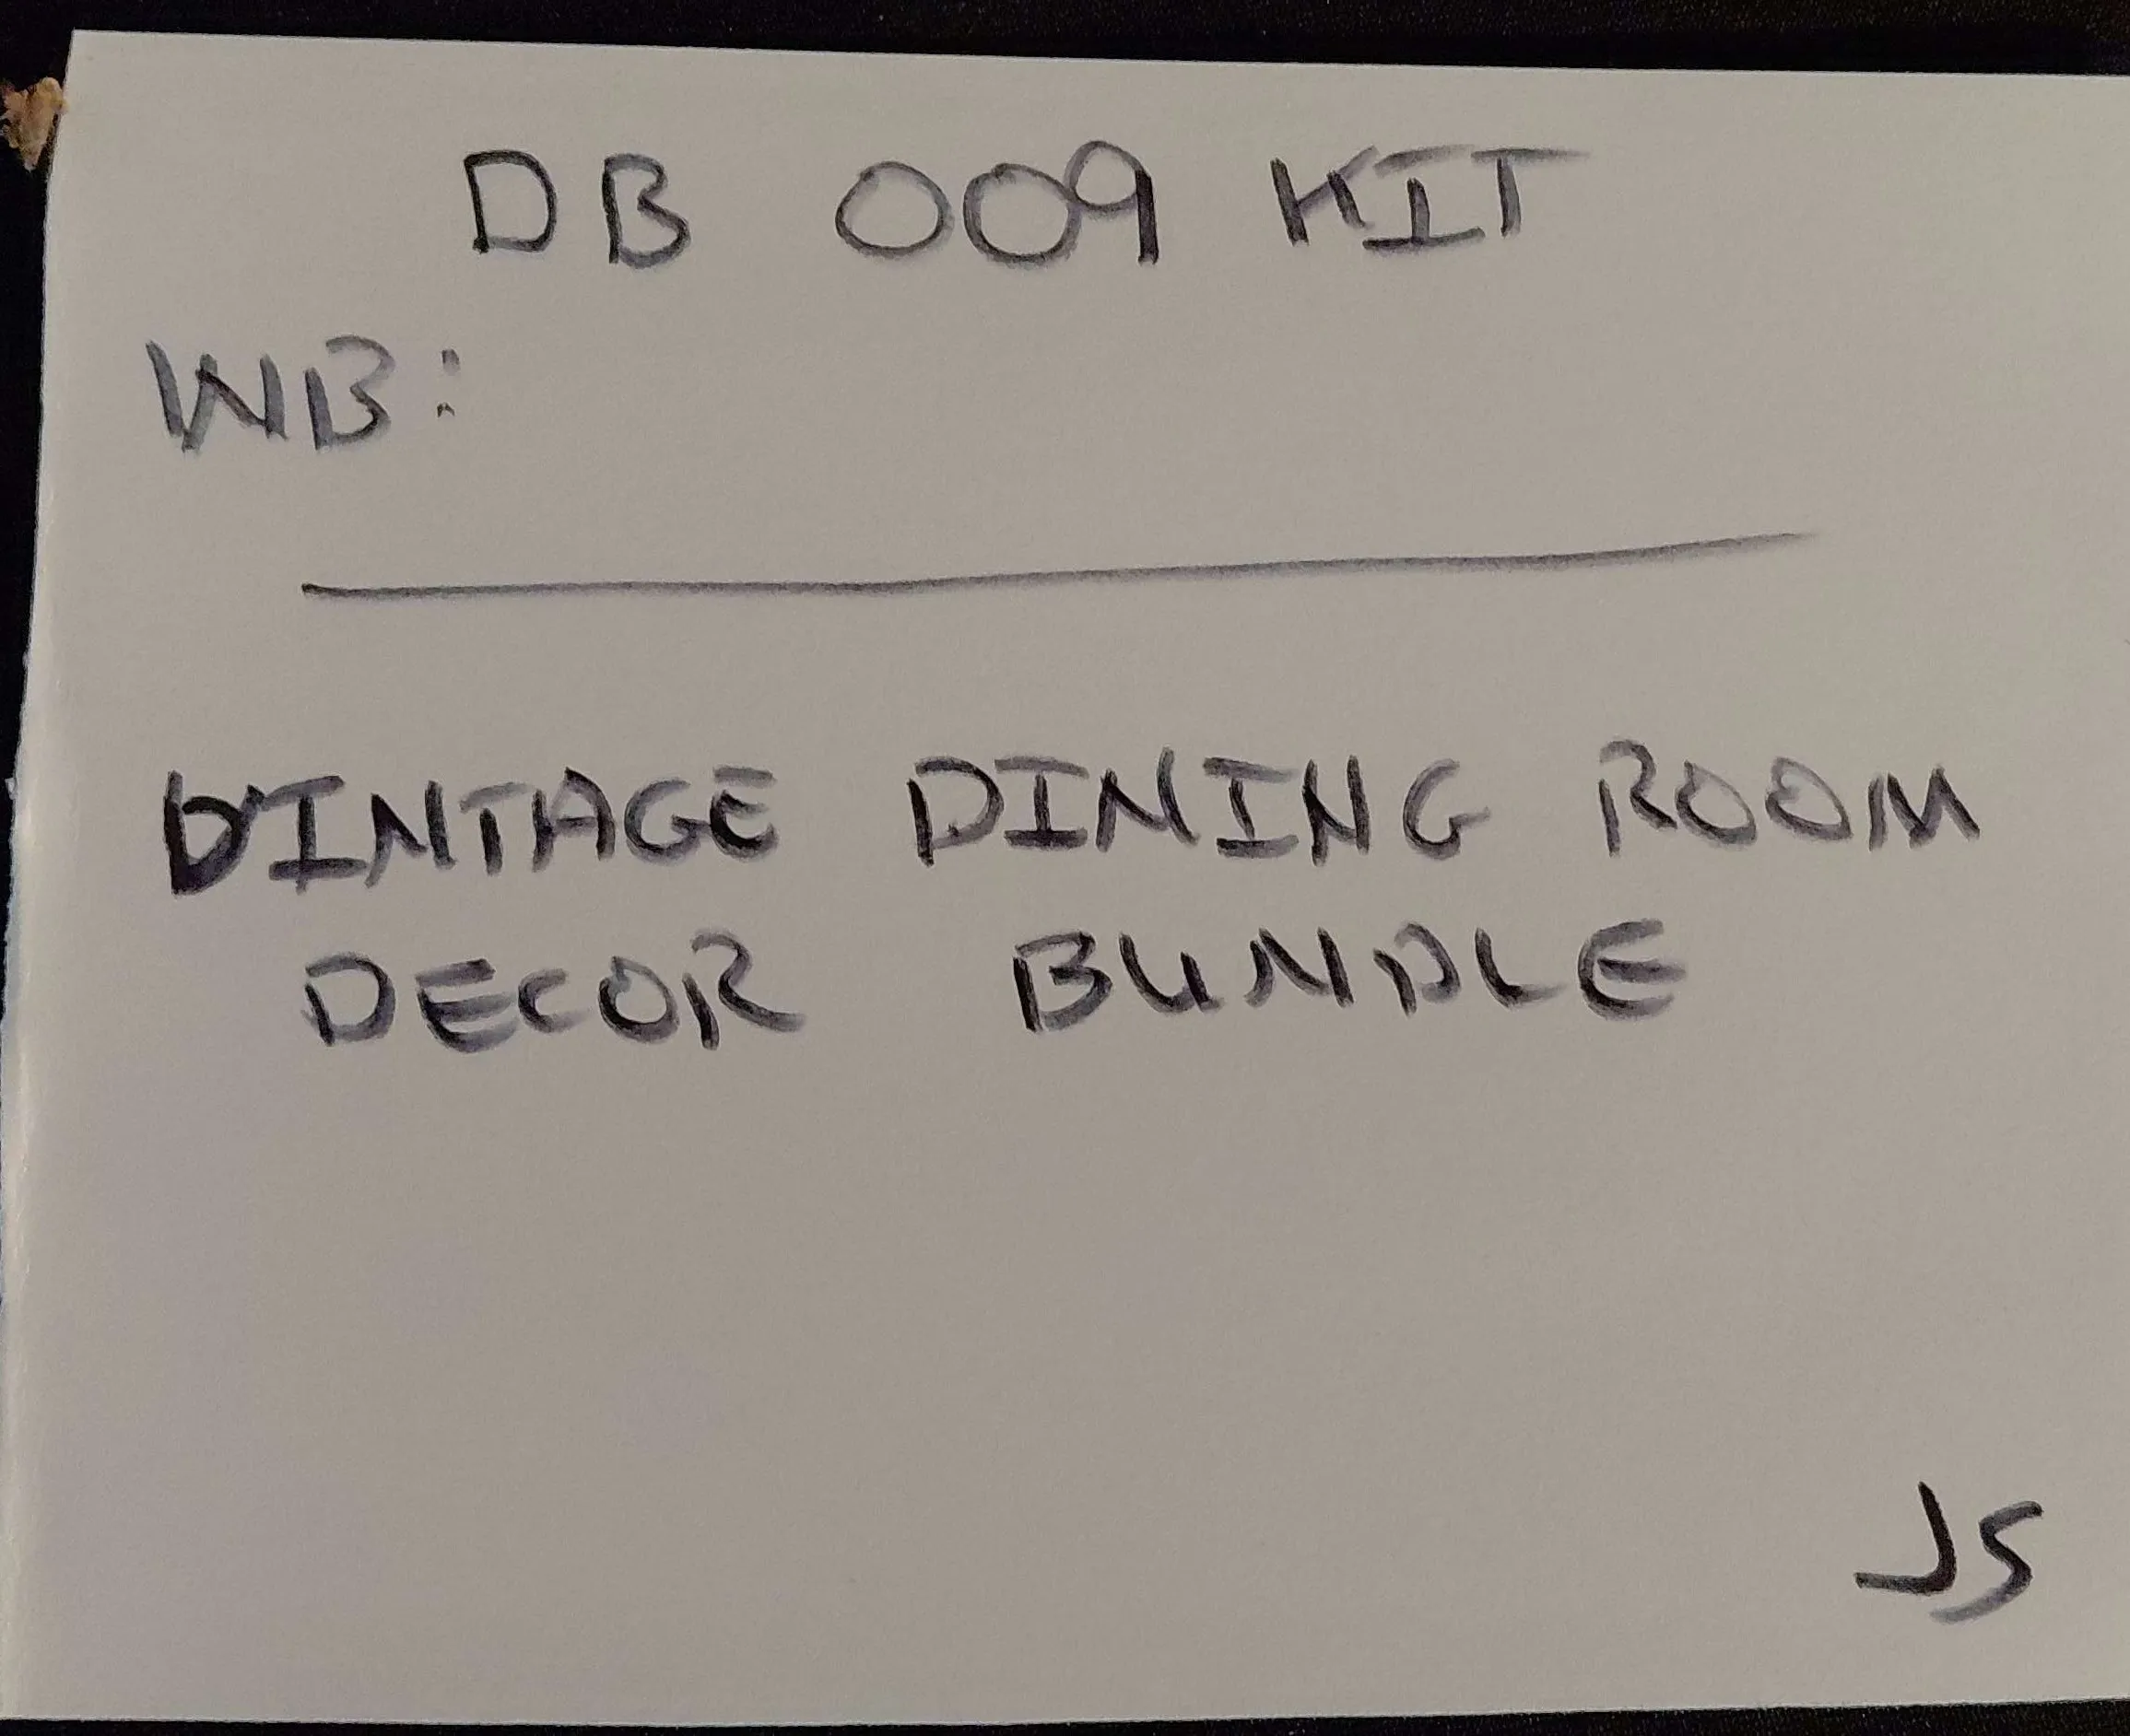 DB 009 KIT
WB:
VINTAGE DINING ROOM
DECOR BUNDLE
JS